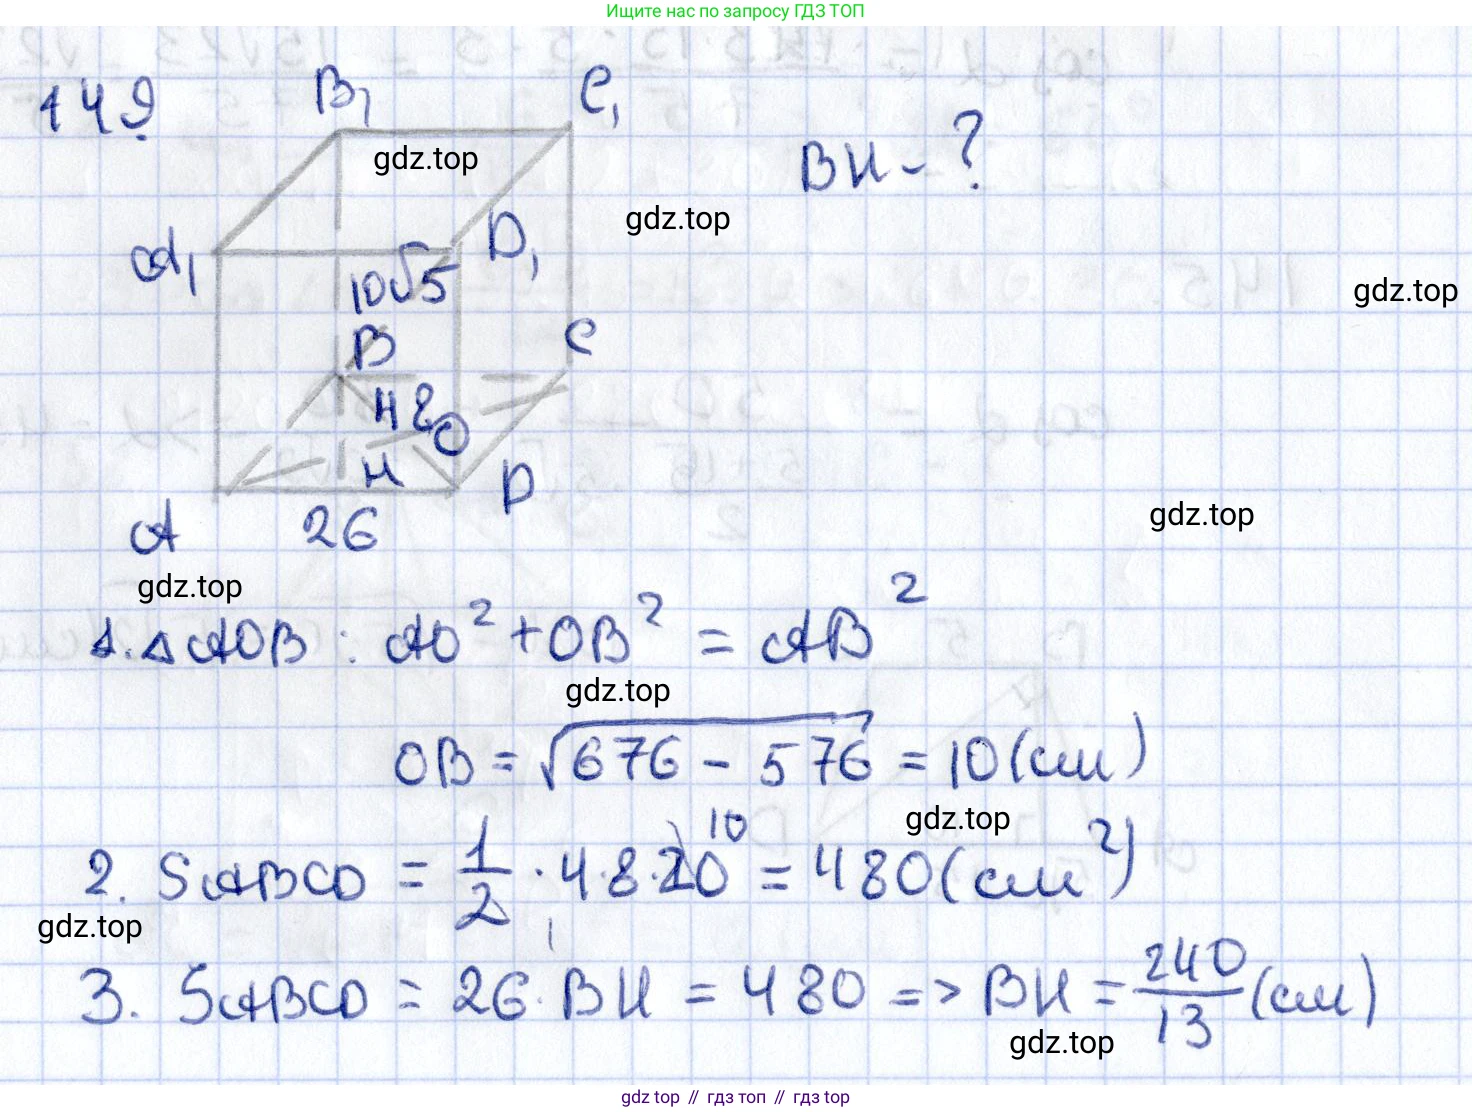 Ищите нас по запросу ГДЗ ТОП
149
B₁
C₁
gdz.top
BH - ?
gdz.top
A₁
D₁
10√5
gdz.top
B
C
48
O
H
D
A
26
gdz.top
gdz.top
1. △AOB : AO² + OB² = AB²
gdz.top
OB = √676 - 576 = 10 (см)
gdz.top
2. SABCD = 1/2 · 48 · 20 10 = 480 (см²)
gdz.top
3. SABCD = 26 · BH = 480 => BH = 240/13 (см)
gdz.top
gdz top // гдз топ // гдз top